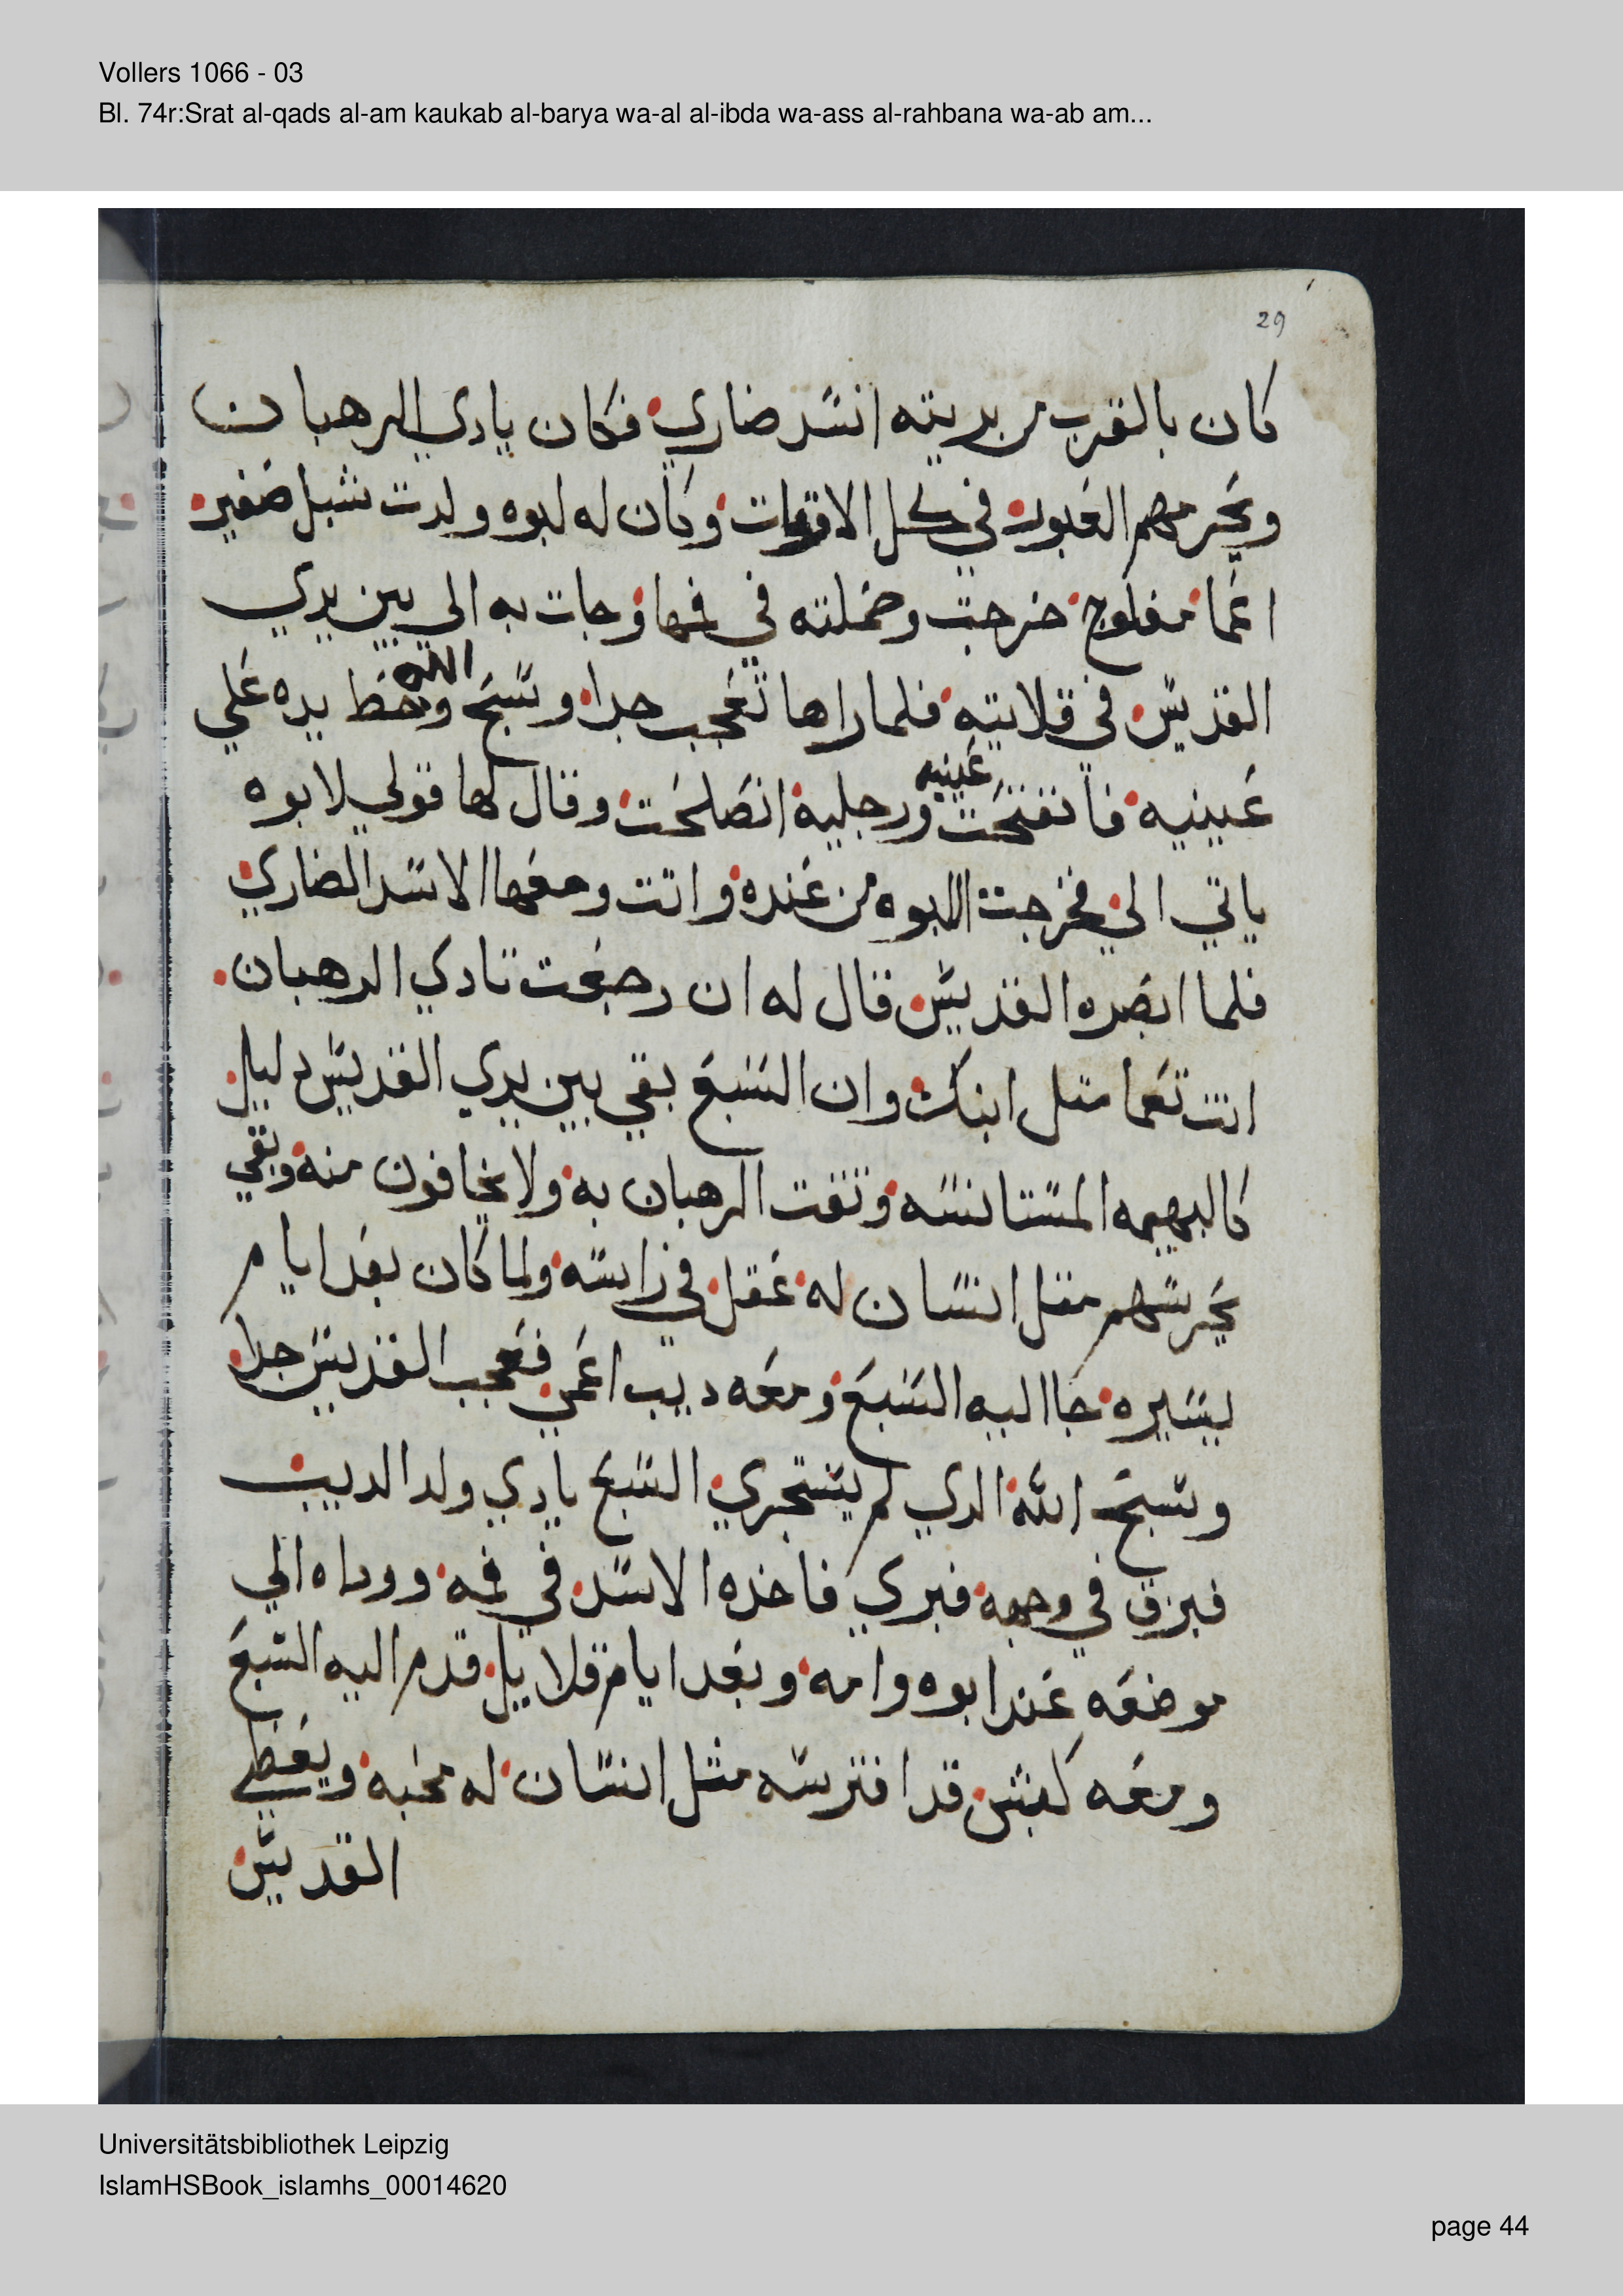 Vollers 1066 - 03
Bl. 74r:Srat al-qads al-am kaukab al-barya wa-al al-ibda wa-ass al-rahbana wa-ab am...
29
كان بالقرب من بريته اسد ضاري فكان يادي الرهبان
ويحرمهم العبور في كل الاوقات وكان له لبوه ولدت شبل صغير
اعما مفلوج خرجت وحملته في فمها وجات به الى بين يدي
القديس في قلايته فلما راها تعجب جدا وسبح الله وحط يده علي
عينيه فانفتحت عينيه ورجليه انصلحت وقال لها قولي لابوه
ياتي الي فخرجت اللبوه من عنده واتت ومعها الاسد الضاري
فلما ابصره القديس قال له ان رجعت تادي الرهبان
انت تعما متل ابنك وان السبع بقي بين يدي القديس دليل
كالبهيمه المستانسه وتقت الرهبان به ولا يخافون منه وبقي
يحرسهم متل انسان له عقل في راسه ولما كان بعد ايام
يسيره جا اليه السبع ومعه ديب اعمي فعجب القديس جدا
وسبح الله الدي لم يستجري السبع يادي ولد الديب
فبزق في وجهه فبري فاخده الاسد في فمه ووداه الي
موضعه عند ابوه وامه وبعد ايام قلايل قدم اليه السبع
ومعه كبش قد افترسه مثل انسان له محبه ويعطي
القديس
Universitätsbibliothek Leipzig
IslamHSBook_islamhs_00014620
page 44